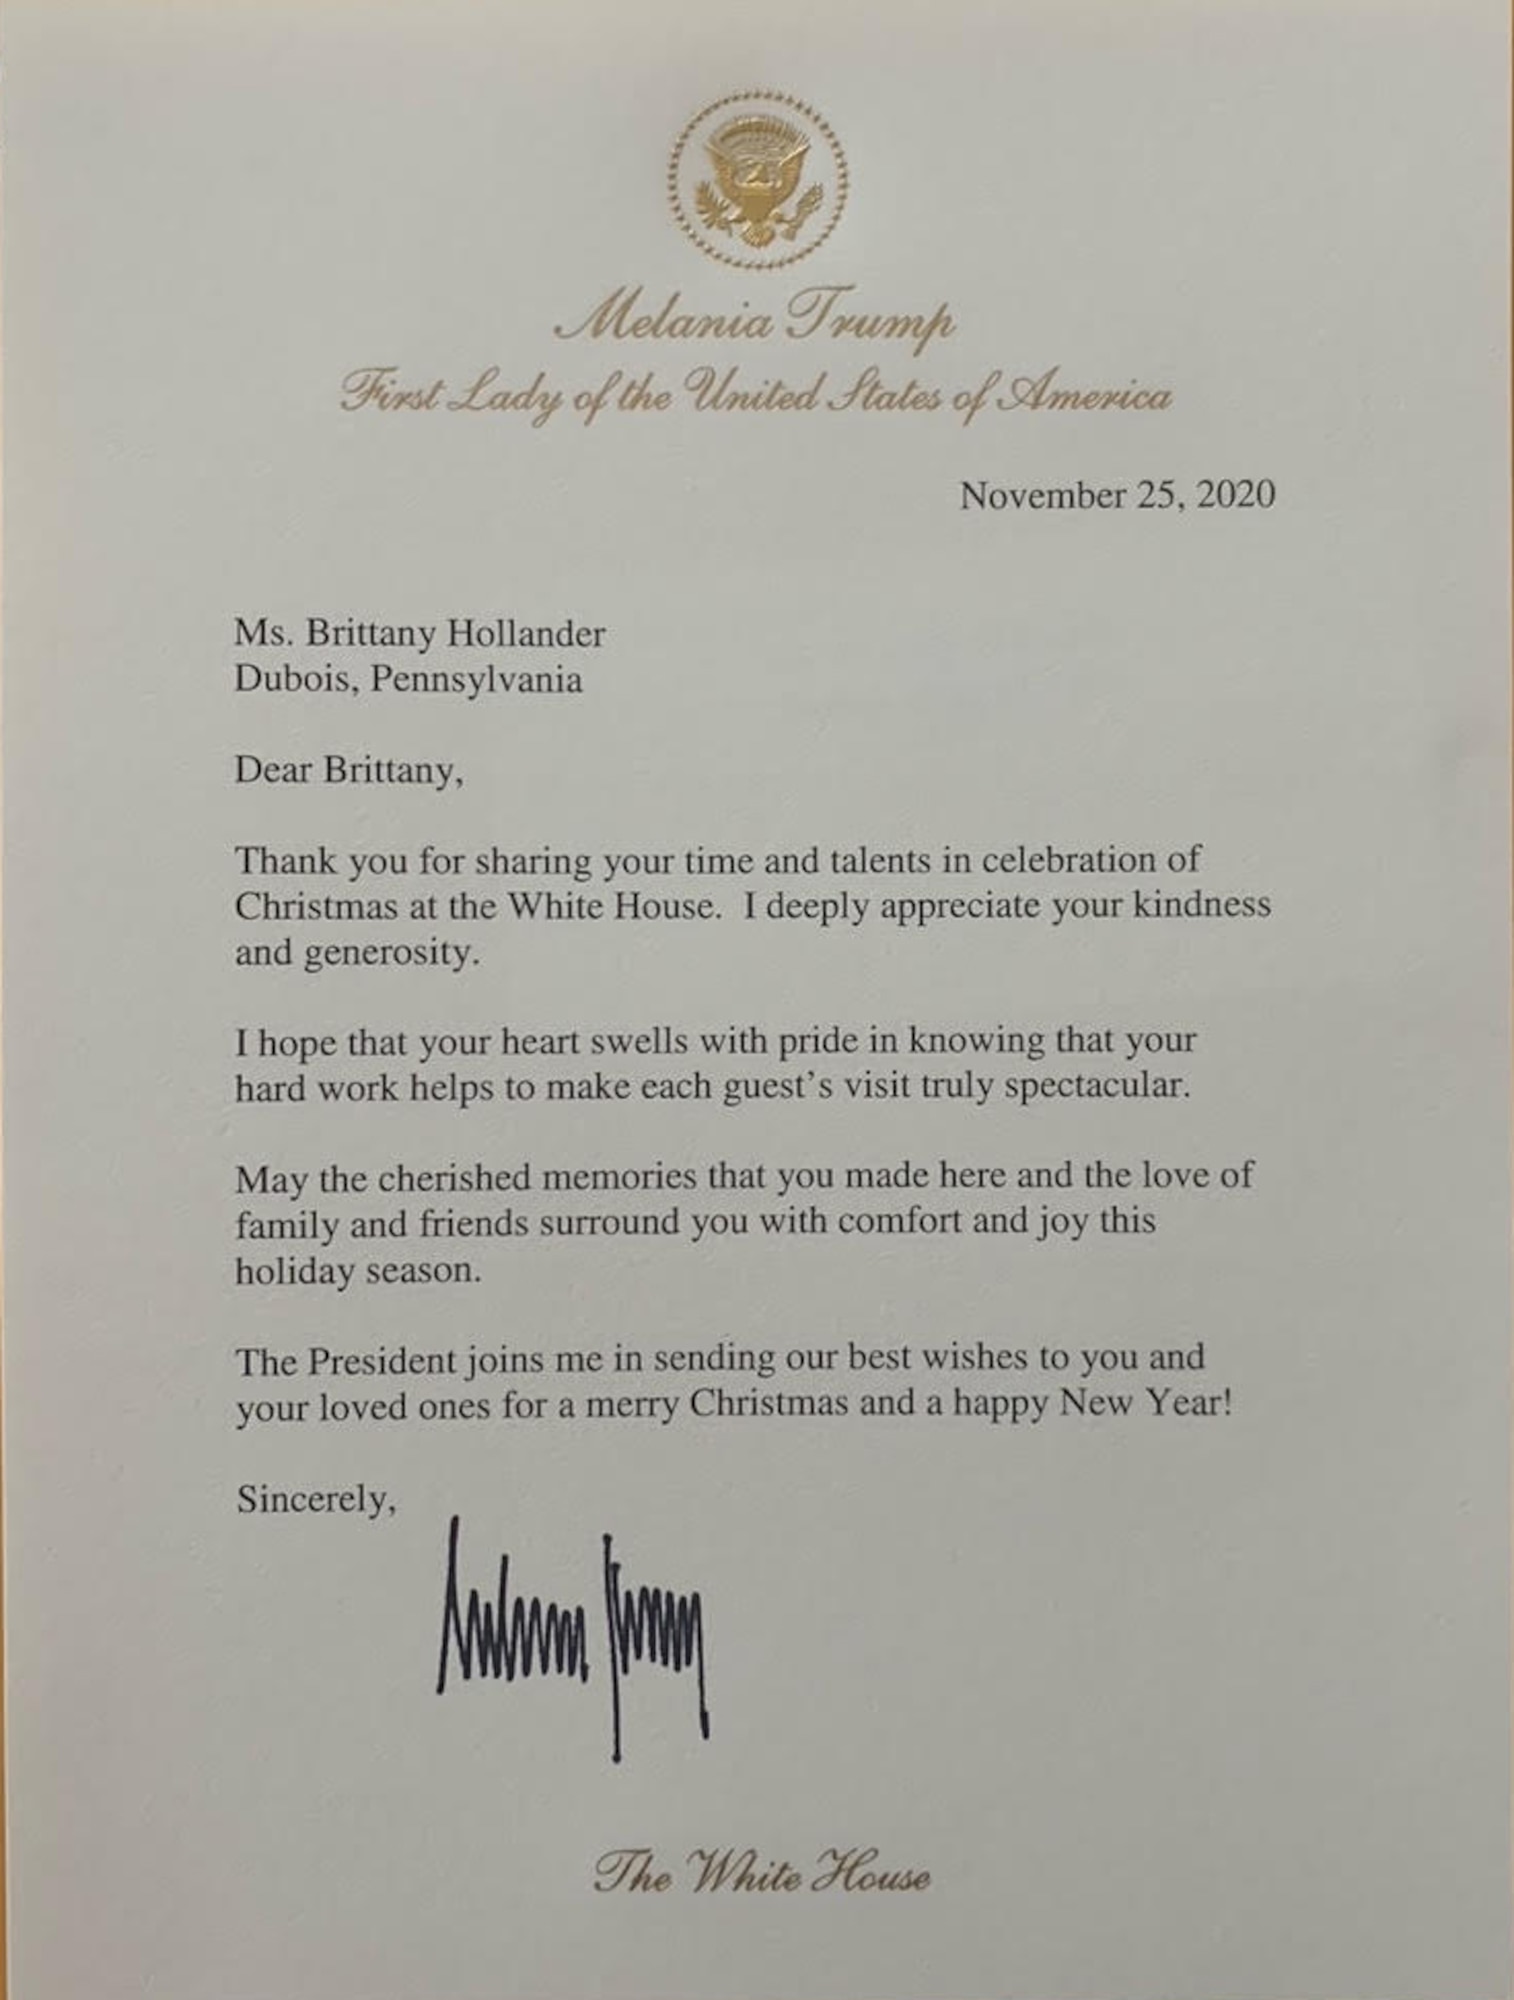 Melania Trump
First Lady of the United States of America
November 25, 2020
Ms. Brittany Hollander
Dubois, Pennsylvania
Dear Brittany,
Thank you for sharing your time and talents in celebration of
Christmas at the White House.  I deeply appreciate your kindness
and generosity.
I hope that your heart swells with pride in knowing that your
hard work helps to make each guest’s visit truly spectacular.
May the cherished memories that you made here and the love of
family and friends surround you with comfort and joy this
holiday season.
The President joins me in sending our best wishes to you and
your loved ones for a merry Christmas and a happy New Year!
Sincerely,
The White House